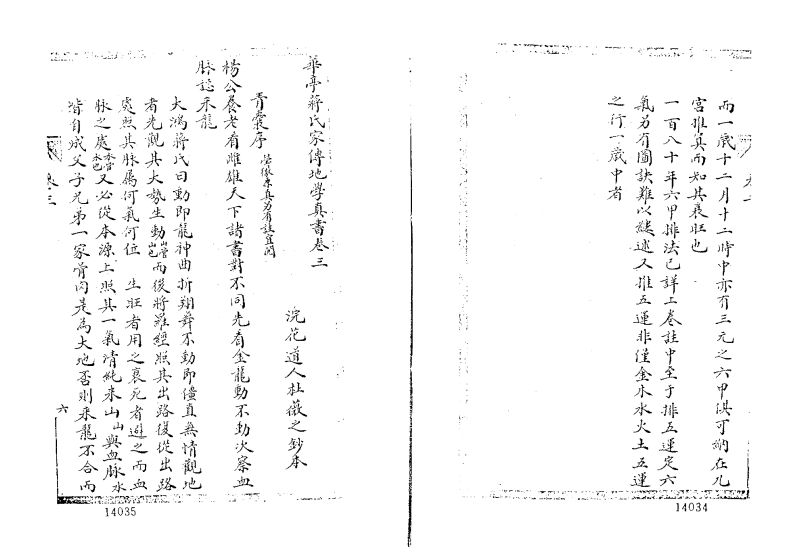 而一歲十二月十二時中亦有三元之六甲俱可納在九
宮推算而知其衰旺也
一百八十年六甲排法已詳上卷註中至于排五運定六
氣另有圖訣難以縷述又推五運非僅金木水火土五運
之行一歲中者
14034
華亭蔣氏家傳地學真書卷三
浣花道人杜薇之鈔本
青囊序
楊公養老看雌雄天下諸書對不同先看金龍動不動次察血
脉認來龍
大鴻蔣氏曰動即龍神曲折翔舞不動即僵直無情觀地
者先觀其大勢生動山管山也而後將羅經照其出路復從出路
處照其脉屬何氣何位 生旺者用之衰死者避之而血
脉之處水管水也又必從本源上照其一氣清純來山山與血脉水
皆自成父子兄弟一家骨肉是為大地否則來龍不合而
卷三
六
14035